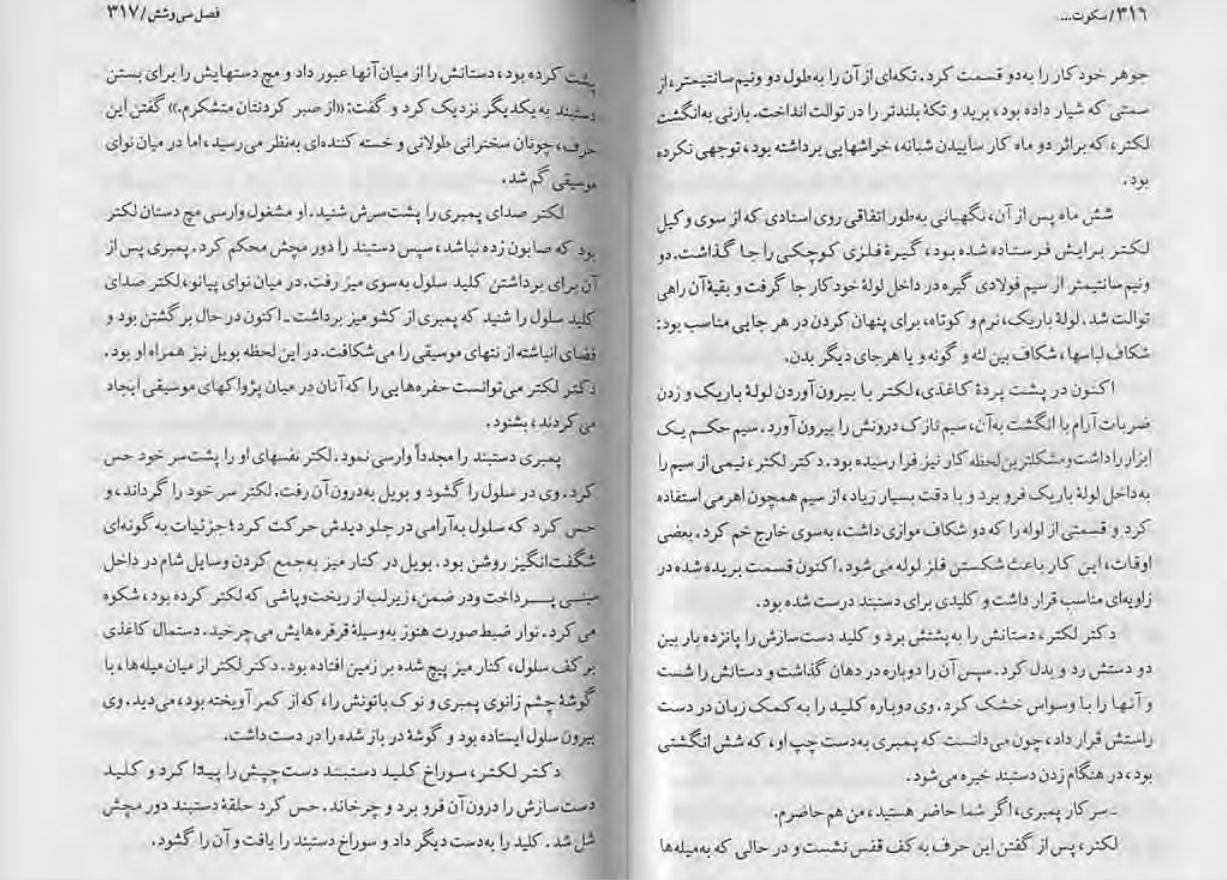 ۳۱۶/سکوت...
جوهر خودکار را به‌دو قسمت کرد. تکه‌ای از آن را به‌طول دو ونیم‌سانتیمتر، از
سمتی که شیار داده بود، برید و تکهٔ بلندتر را در توالت انداخت. بارنی به‌انگشت
لکتر، که براثر دو ماه کار ساییدن شبانه، خراشهایی برداشته بود، توجهی نکرده
بود.
شش ماه پس از آن، نگهبانی به‌طور اتفاقی روی اسنادی که از سوی وکیل
لکتر برایش فرستاده شده بود، گیرهٔ فلزی کوچکی را جا گذاشت. دو
ونیم سانتیمتر از سیم فولادی گیره در داخل لولهٔ خودکار جا گرفت و بقیهٔ آن راهی
توالت شد. لولهٔ باریک، نرم و کوتاه، برای پنهان کردن در هر جایی مناسب بود:
شکاف لباسها، شکاف بین لثه و گونه و یا هرجای دیگر بدن.
اکنون در پشت پردهٔ کاغذی، لکتر با بیرون‌آوردن لولهٔ باریک و زدن
ضربات آرام با انگشت به‌آن، سیم نازک درونش را بیرون آورد. سیم حکم یک
ابزار را داشت و مشکلترین لحظه کار نیز فرا رسیده بود. دکتر لکتر، نیمی از سیم را
به‌داخل لولهٔ باریک فرو برد و با دقت بسیار زیاد، از سیم همچون اهرمی استفاده
کرد و قسمتی از لوله را که دو شکاف موازی داشت، به‌سوی خارج خم کرد. بعضی
اوقات، این کار باعث شکستن فلز لوله می‌شود. اکنون قسمت بریده شده در
زاویه‌ای مناسب قرار داشت و کلیدی برای دستبند درست شده بود.
دکتر لکتر، دستانش را به‌پشتش برد و کلید دست‌سازش را پانزده بار بین
دو دستش رد و بدل کرد. سپس آن را دوباره در دهان گذاشت و دستانش را شست
و آنها را با وسواس خشک کرد. وی دوباره کلید را به‌کمک زبان در دست
راستش قرار داد، چون می‌دانست که پمبری به‌دست چپ او، که شش انگشتی
بود، در هنگام زدن دستبند خیره می‌شود.
ـ سرکار پمبری، اگر شما حاضر هستید، من هم حاضرم.
لکتر، پس از گفتن این حرف به کف قفس نشست و در حالی که به‌میله‌ها
فصل سی‌وشش/۳۱۷
پشت کرده بود، دستانش را از میان آنها عبور داد و مچ دستهایش را برای بستن
دستبند به‌یکدیگر نزدیک کرد و گفت: «از صبر کردنتان متشکرم.» گفتن این
حرف، چونان سخنرانی طولانی و خسته کننده‌ای به‌نظر می‌رسید، اما در میان نوای
موسیقی گم شد.
لکتر صدای پمبری را پشت‌سرش شنید. او مشغول وارسی مچ دستان لکتر
بود که صابون زده نباشد، سپس دستبند را دور مچش محکم کرد. پمبری پس از
آن برای برداشتن کلید سلول به‌سوی میز رفت. در میان نوای پیانو، لکتر صدای
کلید سلول را شنید که پمبری از کشو میز برداشت ـ اکنون در حال برگشتن بود و
فضای انباشته از نتهای موسیقی را می‌شکافت. در این لحظه بویل نیز همراه او بود.
دکتر لکتر می‌توانست حفره‌هایی را که آنان در میان پژواکهای موسیقی ایجاد
می‌کردند، بشنود.
پمبری دستبند را مجدداً وارسی نمود. لکتر نفسهای او را پشت‌سر خود حس
کرد. وی در سلول را گشود و بویل به‌درون آن رفت. لکتر سر خود را گرداند، و
حس کرد که سلول به‌آرامی در جلو دیدش حرکت کرد؛ جزئیات به گونه‌ای
شگفت‌انگیز روشن بود. بویل در کنار میز به‌جمع کردن وسایل شام در داخل
سینی پرداخت ودر ضمن، زیرلب از ریخت‌وپاشی که لکتر کرده بود، شکوه
می کرد. نوار ضبط‌صورت هنوز به‌وسیلهٔ قرقره‌هایش می‌چرخید. دستمال کاغذی
بر کف سلول، کنار میز پیچ شده بر زمین افتاده بود. دکتر لکتر از میان میله‌ها، با
گوشهٔ چشم زانوی پمبری و نوک باتونش را، که از کمر آویخته بود، می‌دید. وی
بیرون سلول ایستاده بود و گوشهٔ در باز شده را در دست داشت.
دکتر لکتر، سوراخ کلید دستبند دست‌چپش را پیدا کرد و کلید
دست‌سازش را درون‌آن فرو برد و چرخاند. حس کرد حلقهٔ دستبند دور مچش
شل شد. کلید را به‌دست دیگر داد و سوراخ دستبند را یافت و آن را گشود.